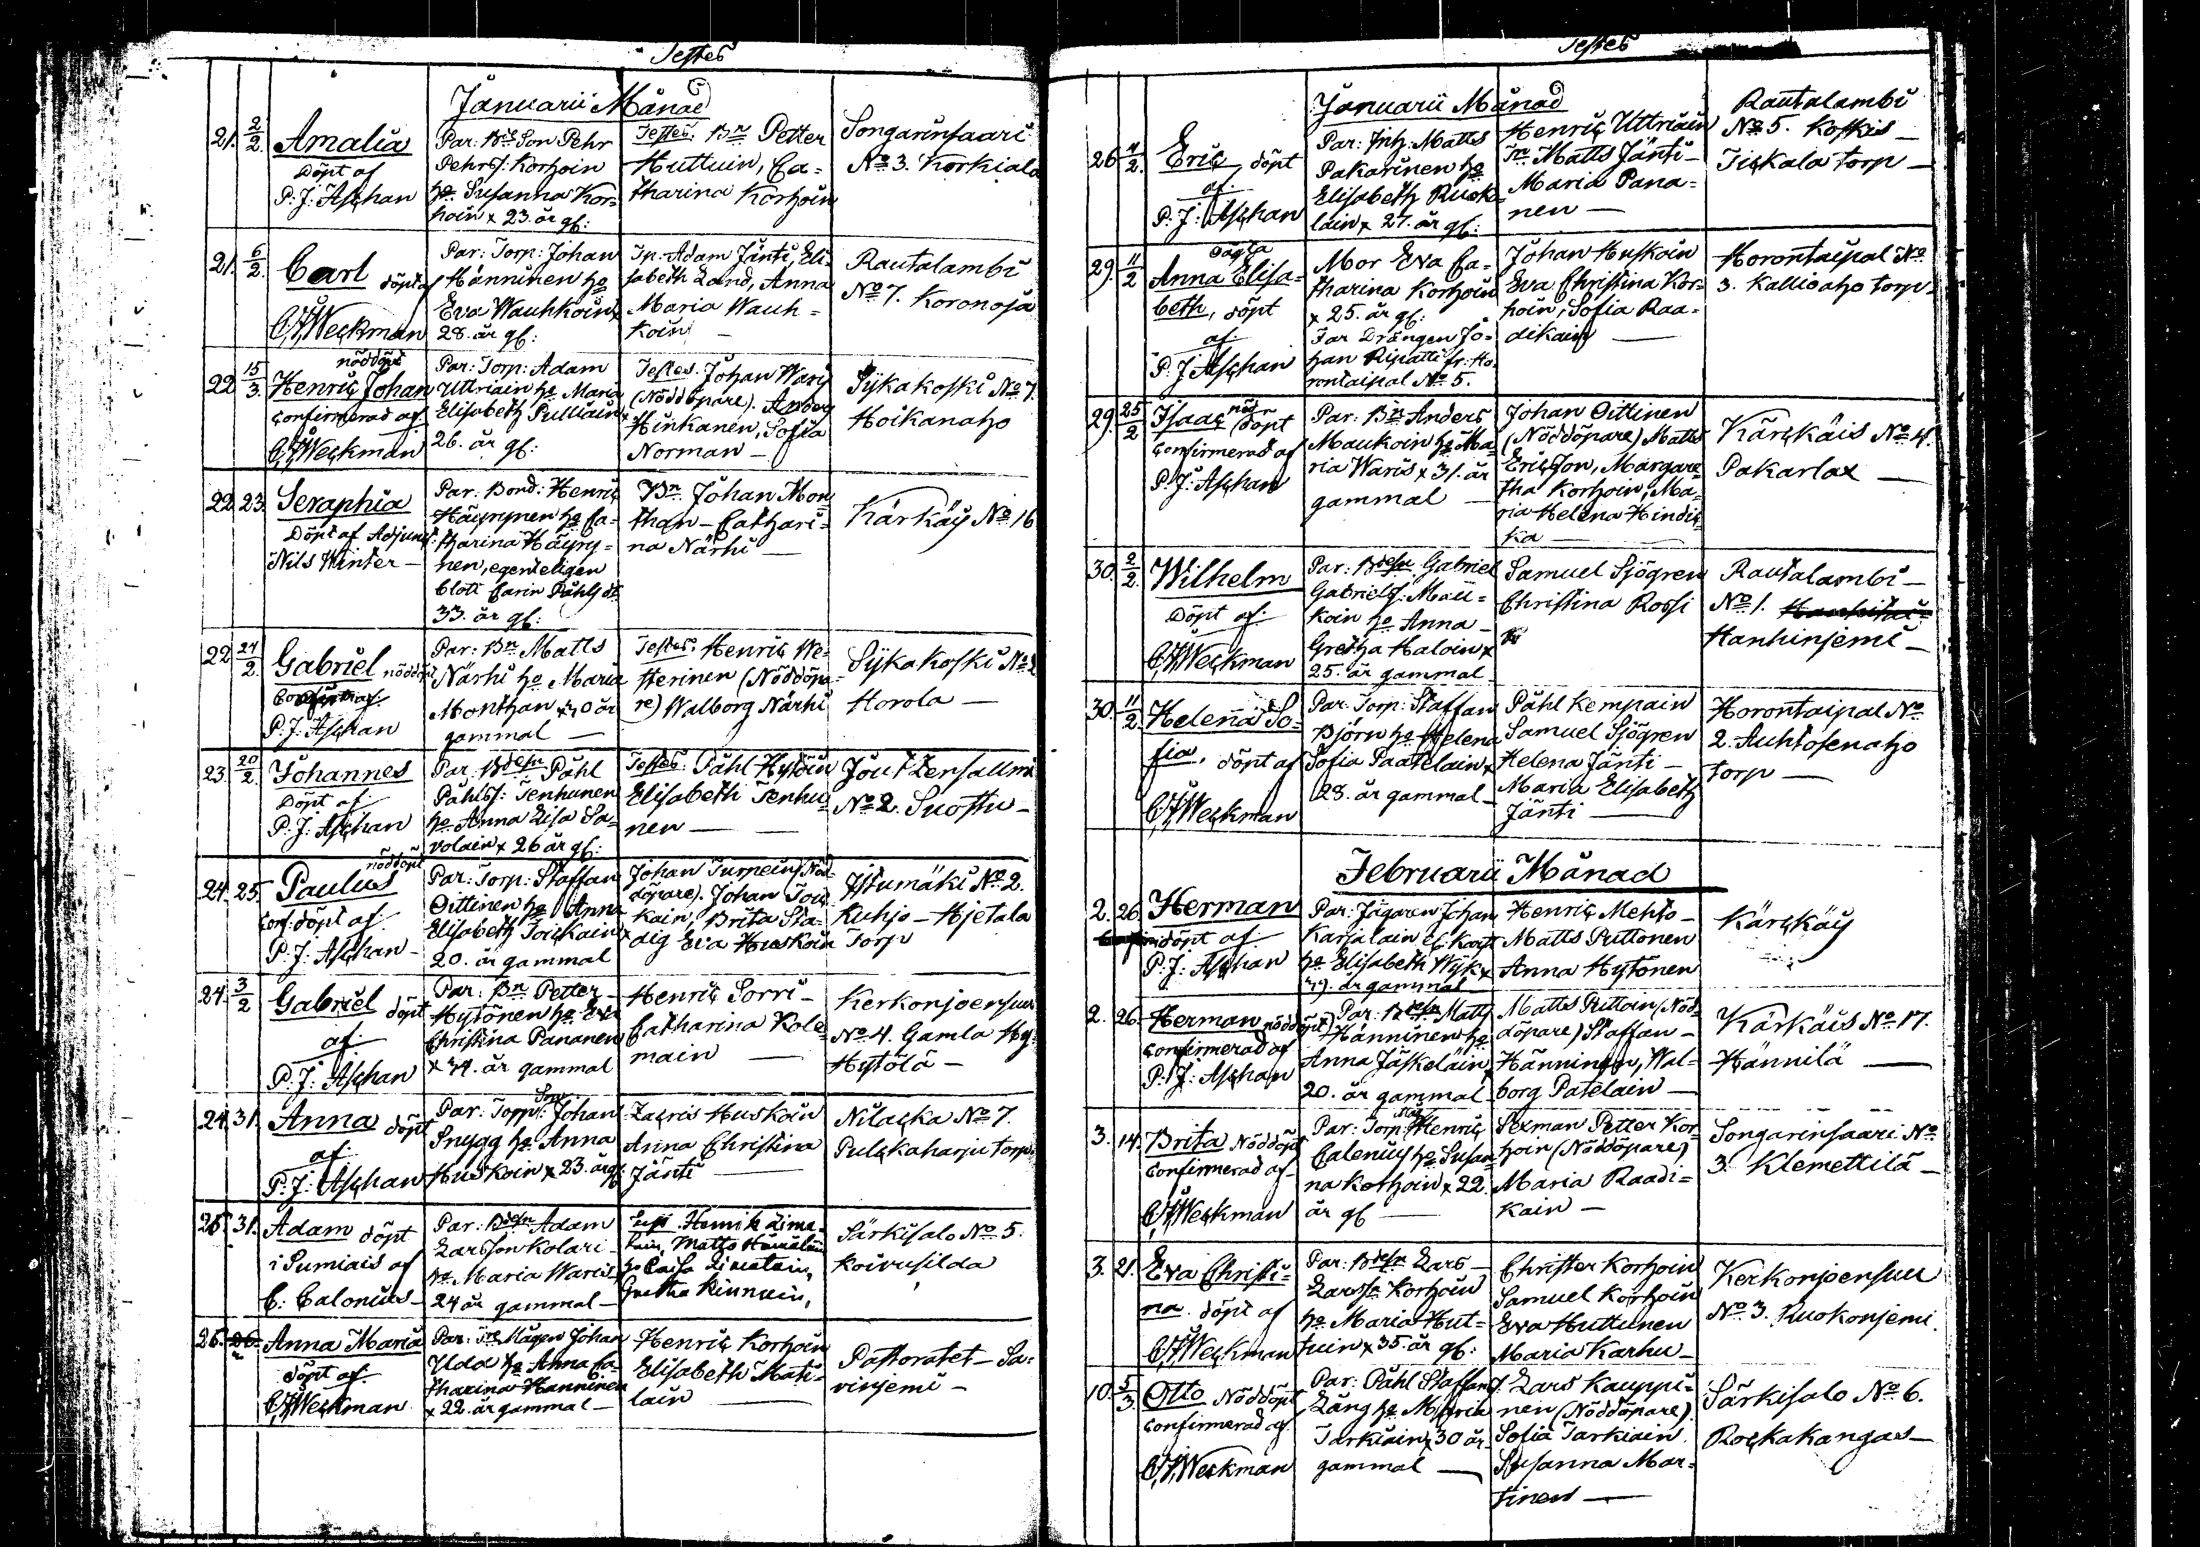 Testes
Januarii Månad
21. 2/2. Amalia
Döpt af
P: J: Aschan
Par. Bde Son Pehr
Pehrs: Korhoin
ho. Susanna Kor=
hoin x 23. år gl:
Testes. Bn Petter
Huttuin, Ca=
tharina Korhoin
Songarinsaari
No 3. Korkiala
21. 6/2. Carl döpt af
C J Weckman
Par: Torp: Johan
Hänninen ho
Eva Wauhkoin x
28. år gl:
Tp. Adam Jänti, Eli=
sabeth Land, Anna
Maria Wauh=
koin
Rautalambi
No 7. Koronoja
22 15/3. nöddöpt
Henric Johan
Confirmerad af
C J Weckman
Par: Torp: Adam
Uttriain ho Maria
Elisabeth Pulliain x
26. år gl:
Testes. Johan Waris
(Nöddöpare). Anders
Hinkanen, Sofia
Norman —
Sÿkakoski No 7.
Hoikanaho
22 23. Seraphia
Döpt af Adjunct:
Nils Winter —
Par: Bond: Henric
Häyrynen ho Ca=
tharina Häyry=
nen, egenteligen
blott Carin Påhls dr
33. år gl:
Bn Johan Mon
than — Cathari=
na Närhi —
Kärkäis No 16
22 24/2. Gabriel nöddöpt
P: J: Aschan
Par: Bn Matts
Närhi ho Maria
Monthan x 40 år
gammal —
Testes: Henric We=
sterinen (Nöddöpa=
re) Walborg Närhi
Sÿkakoski No 2
Horola —
23. 20/2. Johannes
Döpt af
P: J: Aschan
Par. Bdesn Påhl
Påhlss: Tenhunen
ho Anna Lisa Sa=
volain x 26 år gl:
Testes: Påhl Hytöin
Elisabeth Tenhu=
nen —
Joutzensallmi
No 2. Suostu —
24. 25. nöddöpt
Paulus
Conf: döpt af
P: J: Aschan —
Par: Torp: Staffan
Oittinen ho Anna
Elisabeth Toickain x
20. år gammal
Johan Turpein (Nöd=
döpare). Johan Toic
kain, Brita Sta=
dig Eva Huskoin
Istumäki No 2.
Kuhjo — Hjetala
Torp
24. 3/2 Gabriel döpt
af
P: J: Aschan
Par: Bn Petter —
Hytönen ho Eva
Christina Pananen
x 44. år gammal
Henric Sorri —
Catharina Kole=
main —
Kerkonjoensuu
No 4. Gamla Hy
Hytölä —
24. 31. Anna döpt
af
P: J: Aschan
Par: Torp Son: Johan
Snygg ho Anna
Huskoin x 23. år gl
Zacris Huskoin
Anna Christina
Jänti —
Nilacka No 7.
Pulckaharju torp
25. 31. Adam döpt
i Sumiais af
C: Calonius —
Par: Bdesn Adam
Larsson Kolari
ho Maria Waris x
24 år gammal —
Test. Henrik Lima=
tain, Matts Hämäläin
ho Caisa Limatain,
Gretha Kinnuin,
Särkisalo No 5.
Koivusilda
26. Anna Maria
döpt af
C J Weckman
Par: Inh Mågen Johan
Ilda ho Anna Ca=
tharina Hanninen
x 22. år gammal —
Henric Korhoin
Elisabeth Mati=
lain —
Pastoratet — Sa=
vinjemi —
Testes
Januarii Månad
26 4/2. Eric döpt
af
P: J: Aschan
Par: Inh. Matts
Pakarinen ho
Elisabeth Ruoko
lain x 27. år gl:
Henric Uttriain
In Matts Jänti —
Maria Pana=
nen —
Rautalambi
No 5. Koskis —
Tickala torp —
29. 11/2 oägta
Anna Elisa=
beth, döpt
af
P: J: Aschan
Mor Eva Ca=
tharina Korhoin
x 25. år gl:
Far Drängen Jo=
han Ripatti fr: Ho
rontaipal No 5.
Johan Huskoin
Eva Christina Kor=
hoin, Sofia Raa=
dikain —
Horontaipal No
3. Kallioaho torp
29. 25/2 Isaac nöd döpt
Confirmerad af
P: J: Aschan
Par: Bn Anders
Maukoin ho Ma=
ria Waris x 31. år
gammal —
Johan Oittinen
(Nöddöpare) Matts
Ericsson, Margare
tha Korhoin, Ma=
ria Helena Hindic
ka —
Kärckäis No 4.
Pakarlax —
30. 2/2. Wilhelm
Döpt af
C J Weckman
Par: Bdesn Gabriel
Gabriels: Mau=
koin ho Anna —
Gretha Haloin x
25. år gammal
Samuel Sjögren
Christina Rossi
Rautalambi —
No 1.
Hanhinjemi —
30 11/2. Helena So=
fia, döpt af
C J Weckman
Par: Torp: Staffan
Björn ho Helena
Sofia Paatelain x
28. år gammal —
Påhl Kempain
Samuel Sjögren
Helena Jänti —
Maria Elisabeth
Jänti —
Horontaipal No
2. Auhtosenaho
torp —
Februarii Månad
2. 26. Herman
döpt af
P: J: Aschan
Par: Jägaren Johan
Karjalain
ho Elisabeth Wijk x
år gammal
Henric Mehto —
Matts Puttonen
Anna Hytönen
Kärckäis
2. 26. Herman nöddöpt
Confirmerad af
P: J: Aschan
Par: Bdesn Matts
Hänninen ho
Anna Jäskeläin x
20. år gammal
Matts Puttoin (Nöd=
döpare) Staffan —
Hänninen, Wal=
borg Patelain —
Kärkäis No 17.
Hännilä —
3. 14. Brita Nöddöpt
Confirmerad af
C J Weckman
Par: Torp: Måg Henric
Calenius ho Susan
na Korhoin x 22.
år gl —
Sexman Petter Kor=
hoin (Nöddöpare)
Maria Raadi=
kain —
Songarinsaari No
3. Klemettilä —
3. 21. Eva Christi=
na döpt af
C J Weckman
Par: Bdesn Lars —
Larss: Korhoin
ho Maria Hut=
tuin x 35. år gl:
Christer Korhoin
Samuel Korhoin
Eva Huttunen
Maria Karhu —
Kerkonjoensuu
No 3. Ruokonjemi.
10. 5/3 Otto Nöddöpt
Confirmerad af
C J Weckman
Par: Påhl Staffans
Läng ho Maria
Tarkiain x 30 år
gammal —
Lars Kauppi=
nen (Nöddöpare)
Sofia Tarkiain
Susanna Mar=
tinen —
Särkisalo No 6.
Rockakangas —